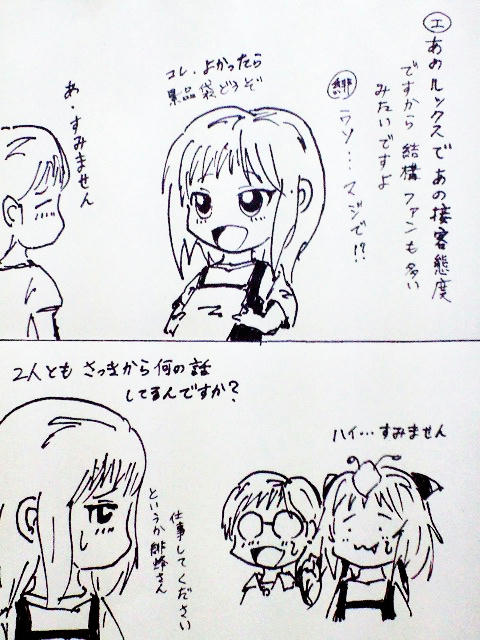 エ
あのルックスであの接客態度
ですから結構ファンも多い
みたいですよ
緋
ウソ…マジで!?
コレ、よかったら
景品袋どうぞ
あ、すみません
2人とも さっきから何の話
してるんですか?
ハイ…すみません
仕事してください
というか緋蜂さん